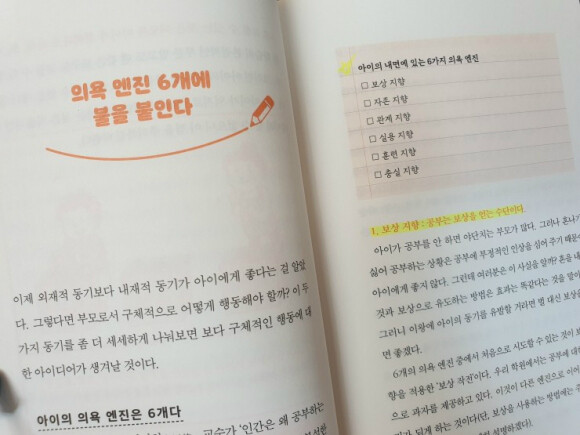 의욕 엔진 6개에
불을 붙인다
이제 외재적 동기보다 내재적 동기가 아이에게 좋다는 걸 알았
다. 그렇다면 부모로서 구체적으로 어떻게 행동해야 할까? 이 두
가지 동기를 좀 더 세세하게 나눠보면 보다 구체적인 행동에 대
한 아이디어가 생겨날 것이다.
아이의 의욕 엔진은 6개다
교수가 '인간은 왜 공부하는
아이의 내면에 있는 6가지 의욕 엔진
□ 보상 지향
□ 자존 지향
□ 관계 지향
□ 실용 지향
□ 훈련 지향
□ 충실 지향
1. 보상 지향 : 공부는 보상을 얻는 수단이다
아이가 공부를 안 하면 야단치는 부모가 많다. 그러나 혼나기
싫어 공부하는 상황은 공부에 부정적인 인상을 심어 주기 때문에
아이에게 좋지 않다. 그런데 여러분은 이 사실을 알까? 혼을 내
것과 보상으로 유도하는 방법은 효과는 똑같다는 것을 말이
그러니 이왕에 아이의 동기를 유발할 거라면 벌 대신 보상을
면 좋겠다.
6개의 의욕 엔진 중에서 처음으로 시도할 수 있는 것이
향을 적용한 '보상 작전'이다. 우리 학원에서는 공부에 대한
으로 과자를 제공하고 있다. 이것이 다른 엔진으로 이어
되게 하는 것이다(단, 보상을 사용하는 방법에는 주
설명하겠다)